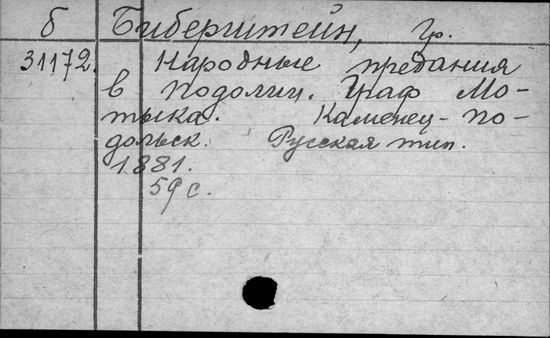 б Биберштейн, Гр.
31172. Народные предания
в Подолии. Граф Мо-
тыка. Каменец-По-
дольск. Русская тип.
1881.
59 с.